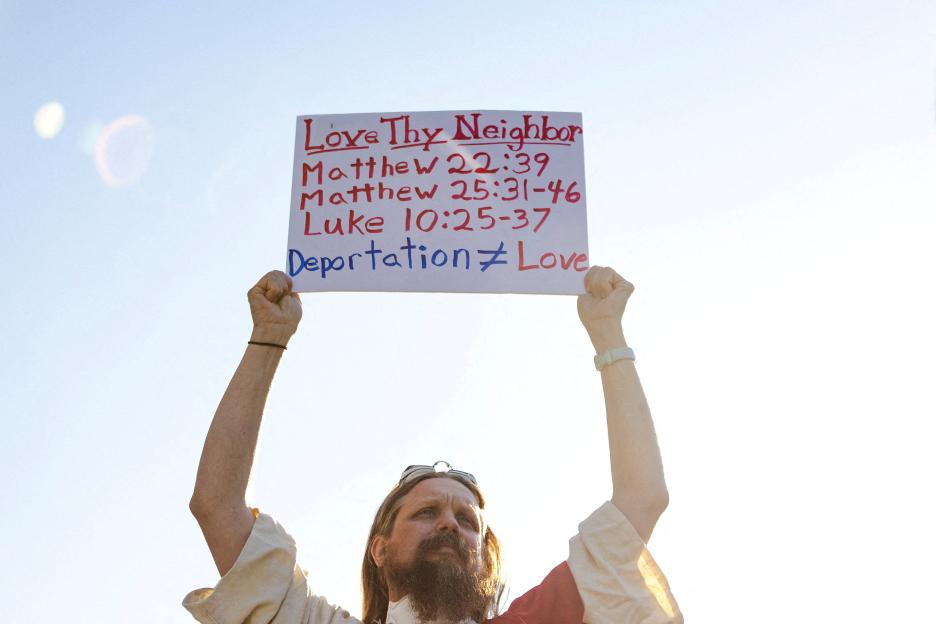 Love Thy Neighbor
Matthew 22:39
Matthew 25:31-46
Luke 10:25-37
Deportation ≠ Love